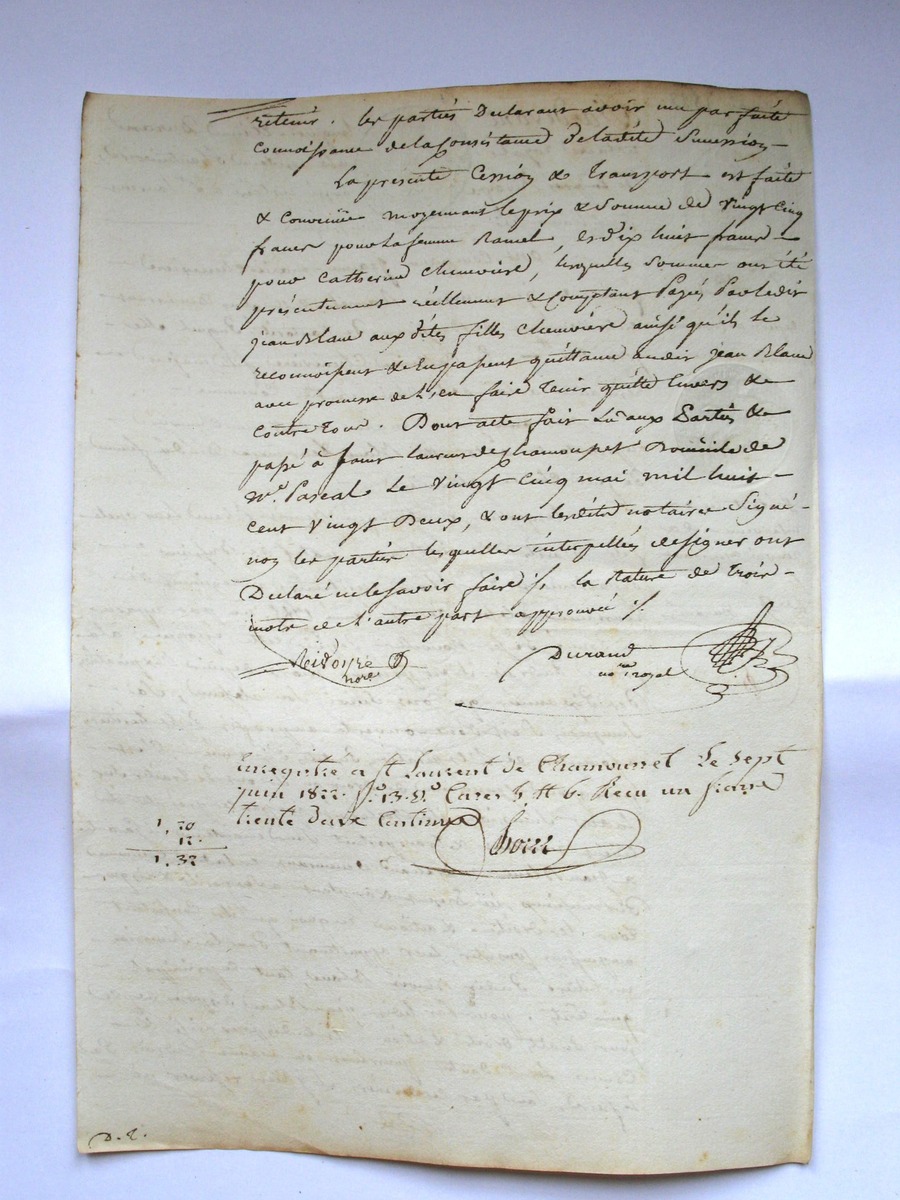 retenir. les parties Declarant avoir une parfaite
connoissance de la Consistance De ladite Succession
La presente Cession & Transport est faite
& Convenüe moyennant le prix & Somme de Vingt Cinq
francs pour la femme Ramel, et dix huit francs
pour Catherine Chenviere, lesquelles Sommes ont été
présentement réellement & Comptant Payés Par ledit
jean Blanc aux dites filles Chenviere ainsi qu'ils le
reconnoissent & En passent quittance audit jean Blanc
avec promesse de L'en faire Tenir quitte Envers &
Contre Tous. Dont acte fait Lû aux Parties &
passé à saint laurent de Chamousset Domicile de
Me. Pascal Le Vingt Cinq mai mil huit
cent Vingt Deux, & ont lesdits notaires Signé
non les parties lesquelles interpellées de signer ont
Declaré ne le Savoir faire /. la Rature de Trois
mots de L'autre part approuvée /.
Durand
no.re royal
nore.
Enregistré a St Laurent de Chamousset Le Sept
juin 1822. fo. 13. Vo. Cases 5 & 6. Recu un franc
trente deux Centimes
1, 20
12.
1, 32
D. L.